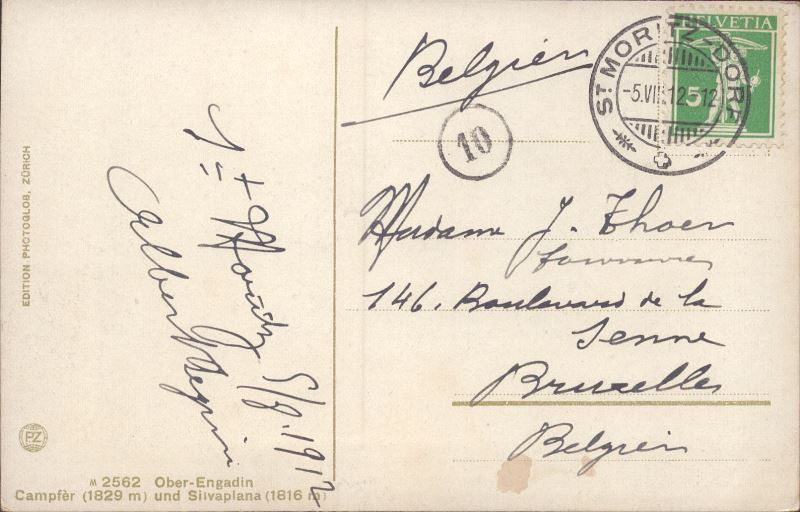 Belgien
HELVETIA
5
ST MORITZ-DORF
-5.VII.12-12
10
St Moritz 5/8.1912
Albert
Madame J. Thoer
146. Boulevard de la
Senne
Bruxelles
Belgien
EDITION PHOTOGLOB, ZÜRICH
PZ
№ 2562 Ober-Engadin
Campfèr (1829 m) und Silvaplana (1816 m)